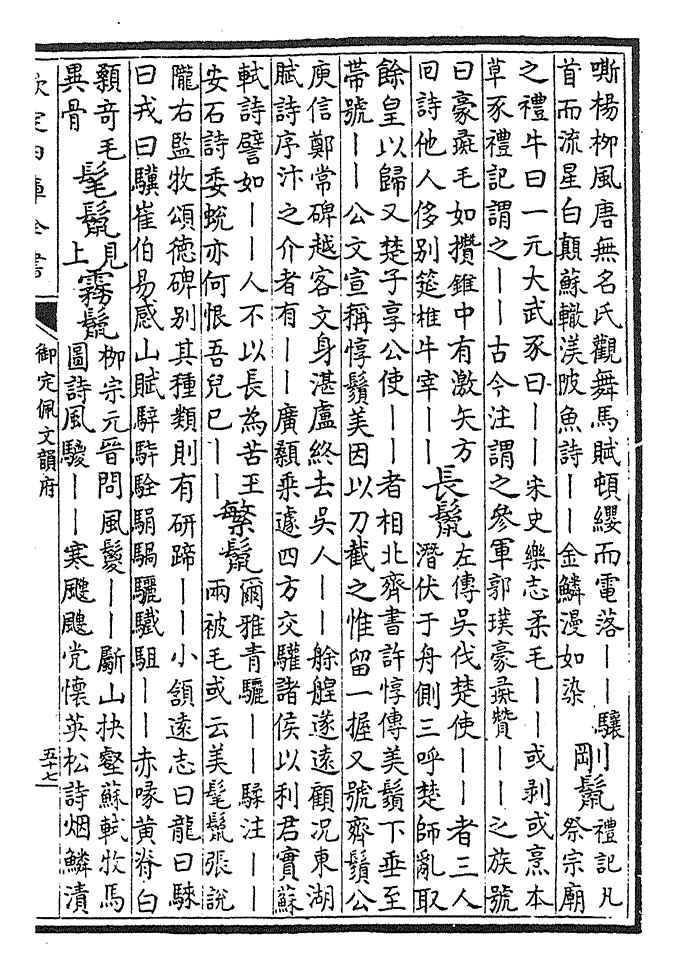 嘶楊柳風唐無名氏觀舞馬賦頓纓而電落——驤
首而流星白顛蘇轍渼陂魚詩——金鱗漫如染
剛鬛
禮記凡
祭宗廟
之禮牛曰一元大武豕曰——宋史樂志柔毛——或剥或烹本
草豕禮記謂之——古今注謂之參軍郭璞豪彘贊——之族號
曰豪彘毛如攢錐中有激矢方
回詩他人侈别筵椎牛宰——
長鬛
左傳吳伐楚使——者三人
潛伏于舟側三呼楚師亂取
餘皇以歸又楚子享公使——者相北齊書許惇傳美鬚下垂至
帶號——公文宣稱惇鬚美因以刀截之惟留一握又號齊鬚公
庾信鄭常碑越客文身湛盧終去吳人——艅艎遂遠顧况東湖
賦詩序汴之介者有——廣顙乘遽四方交驩諸侯以利君實蘇
軾詩譬如——人不以長為苦王
安石詩委蛻亦何恨吾兒已——
繁鬛
爾雅青驪——騥注——
兩被毛或云美髦鬛張說
隴右監牧頌德碑别其種類則有研蹄——小領遠志曰龍曰騋
曰戎曰驥崔伯易感山賦騂駻駩駽騧驪驖駔——赤喙黄脊白
顙竒毛
異骨
髦鬛
見
上
霧鬛
柳宗元晉問風鬉——斸山抉壑蘇軾牧馬
圖詩風騣——寒颼颼党懷英松詩烟鱗漬
欽定四庫全書
御定佩文韻府
五十七